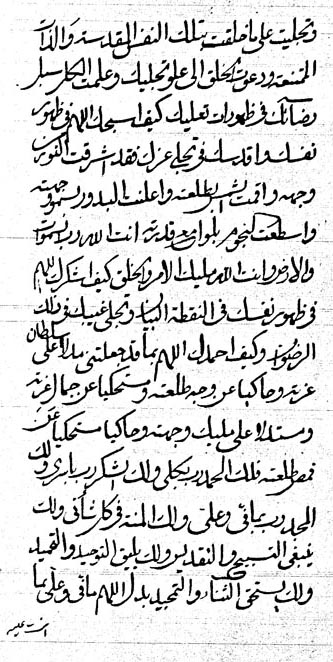 وتجليت على ما خلقت بتلك النفس المقدسة والذات
الممتنعة ودعوت الخلق الى علو تجليك وعلمت الكل سبل
رضائك في ظهورات تعليك كيف اسبحك اللهم في ظهور
نفسك واقدسك في تجلي عزك فقد اشرقت
وجهه واقمت الشمس بطلعته واعلنت البدور بسمو وجهته
واسطعت النجوم بلوامع قدرته انت الله رب السموات
والارض وانت الله مليك الامر والخلق كيف اشكرك اللهم
في ظهور نفسك في النقطة البيان وتجلي غيبك في ذلك
الرضوان وكيف احمدك اللهم بما قد جعلتني مدلا على سلطان
عزته وحاكيا عن وجه طلعته ومستحكيا عن جمال عزته
ومستدلا على مليك وجهته وحاكيا مستحكيا عن
طلعته فلك الحمد رب بكلي ولك الشكر رب ولك
المجد رب بما في وعلي ولك المنة في كل شأني ولك
ينبغي التسبيح والتقديس ولك يليق التوحيد والتحميد
ولك يستحق الثناء والتمجيد بدل اللهم ما في وعلي بما
انت عليه